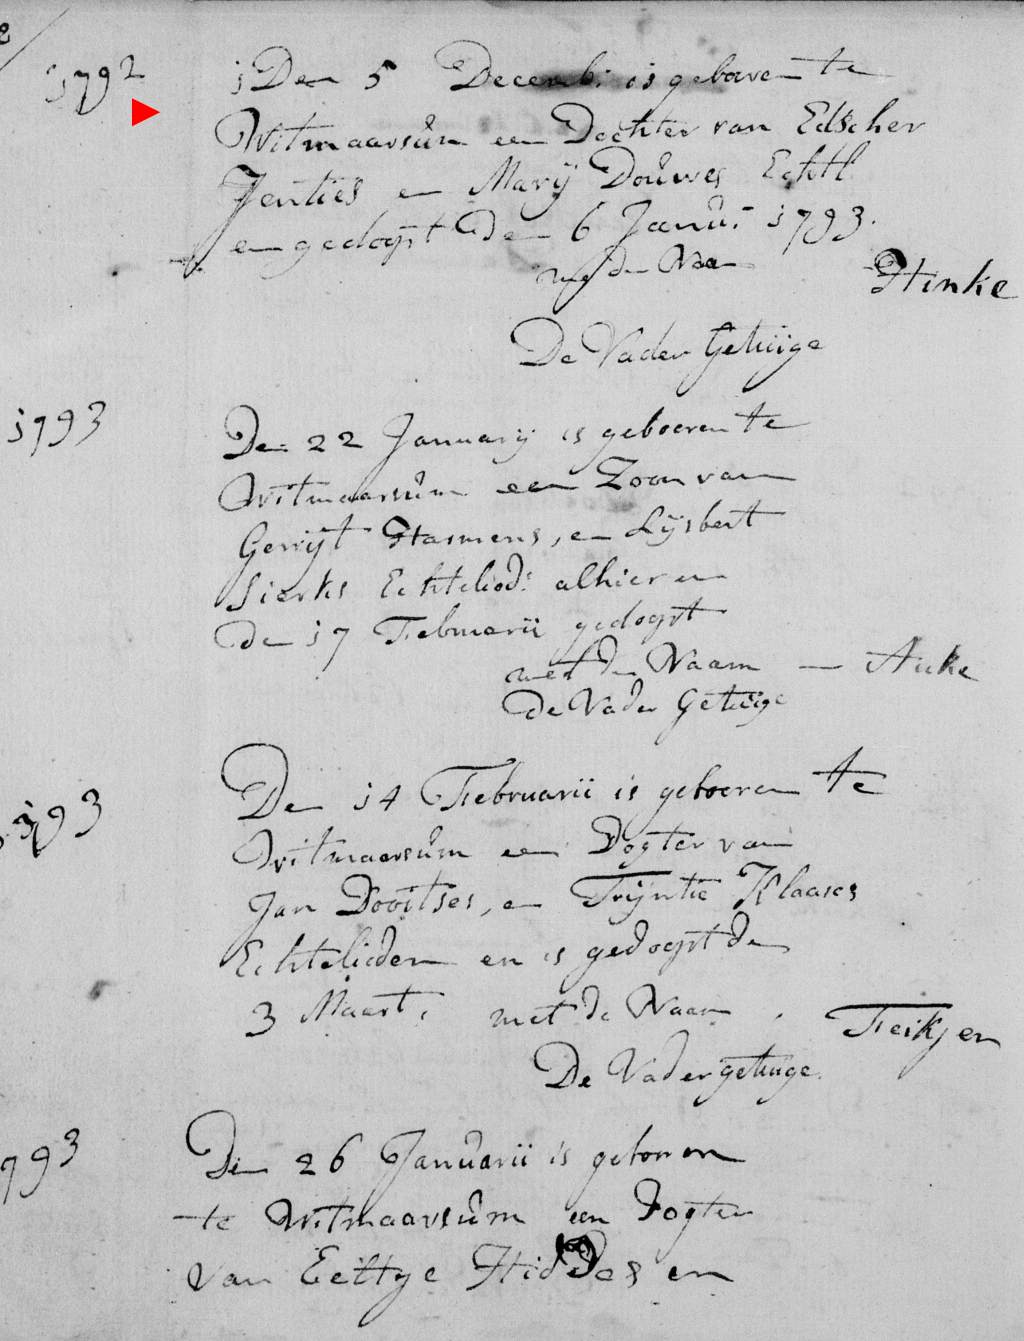 2
1792
Den 5 Decemb: is geboren te
Witmaarsum een Dochter van Edscher
Jenties en Marij Douwes Echtl
en gedogt Den 6 Janu: 1793.
met den Naam Hinke
De Vader Getuige
1793
Den 22 Januarij is geboeren te
Witmaarsum een Zoon van
Gerrijt Harmens, en Lijsbert
Sierks Echteliod: alhier en
den 17 Februarii gedoopt
met den Naam — Auke
De Vader Getuige
1793
Den 14 Februarii is geboeren te
Witmaarsum een Dogter van
Jan Dooitses, en Trijntie Klaases
Echtelieden en is gedoopt den
3 Maart. met de Naam. Feikjen
De Vader getuige.
1793
Den 26 Januarii is geboren
te Witmaarsum een Dogter
van Eeltje Hiddes en